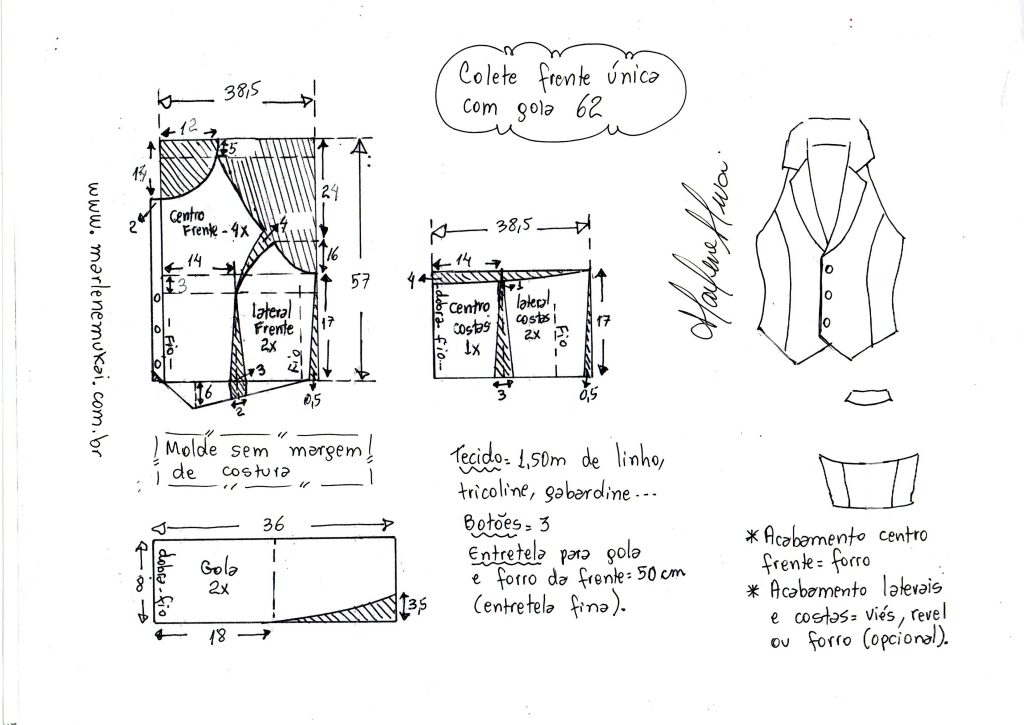 Colete frente única
com gola 62
38,5
12
5
13
24
2
Centro
Frente - 4x
4
16
14
3
57
lateral
Frente
2x
17
Fio
Fio
3
6
2
0,5
www.marlenemukai.com.br
Molde sem margem
de costura
38,5
14
4
1
dobra-fio
Centro
costas
1x
lateral
costas
2x
Fio
17
3
0,5
Marlene Mukai
36
8
dobra-fio
Gola
2x
3,5
18
Tecido = 1,50m de linho,
tricoline, gabardine...
Botões = 3
Entretela para gola
e forro da frente = 50 cm
(entretela fina).
* Acabamento centro
frente = forro
* Acabamento laterais
e costas = viés, revel
ou forro (opcional).